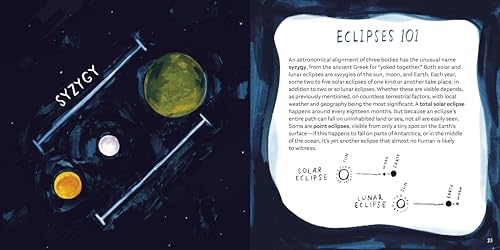 SYZYGY
ECLIPSES 101
An astronomical alignment of three bodies has the unusual name
syzygy, from the ancient Greek for "yoked together." Both solar and
lunar eclipses are syzygies of the sun, moon, and Earth. Each year,
some two to five solar eclipses of one kind or another take place, in
addition to two or so lunar eclipses. Whether these are visible depends,
as previously mentioned, on countless terrestrial factors, with local
weather and geography being the most significant. A total solar eclipse
happens around every eighteen months, but because an eclipse's
entire path can fall on uninhabited land or sea, not all are easily seen.
Some are point eclipses, visible from only a tiny spot on the Earth's
surface—if this happens to fall on parts of Antarctica, or in the middle
of the ocean, it's yet another eclipse that almost no human is likely
to witness.
SOLAR
ECLIPSE
SUN
MOON
EARTH
LUNAR
ECLIPSE
SUN
EARTH
MOON
23